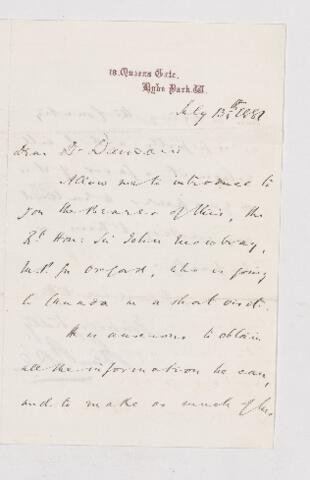 18, Queens Gate,
Hyde Park. W.
July 13th 1881
Dear Dr Dawson
Allow me to introduce to
you the Bearer of this, the
Rt Hon: Sir John Mowbray,
M.P. for Oxford, who is going
to Canada on a short visit.
He is anxious to obtain
all the information he can,
and to make as much of his